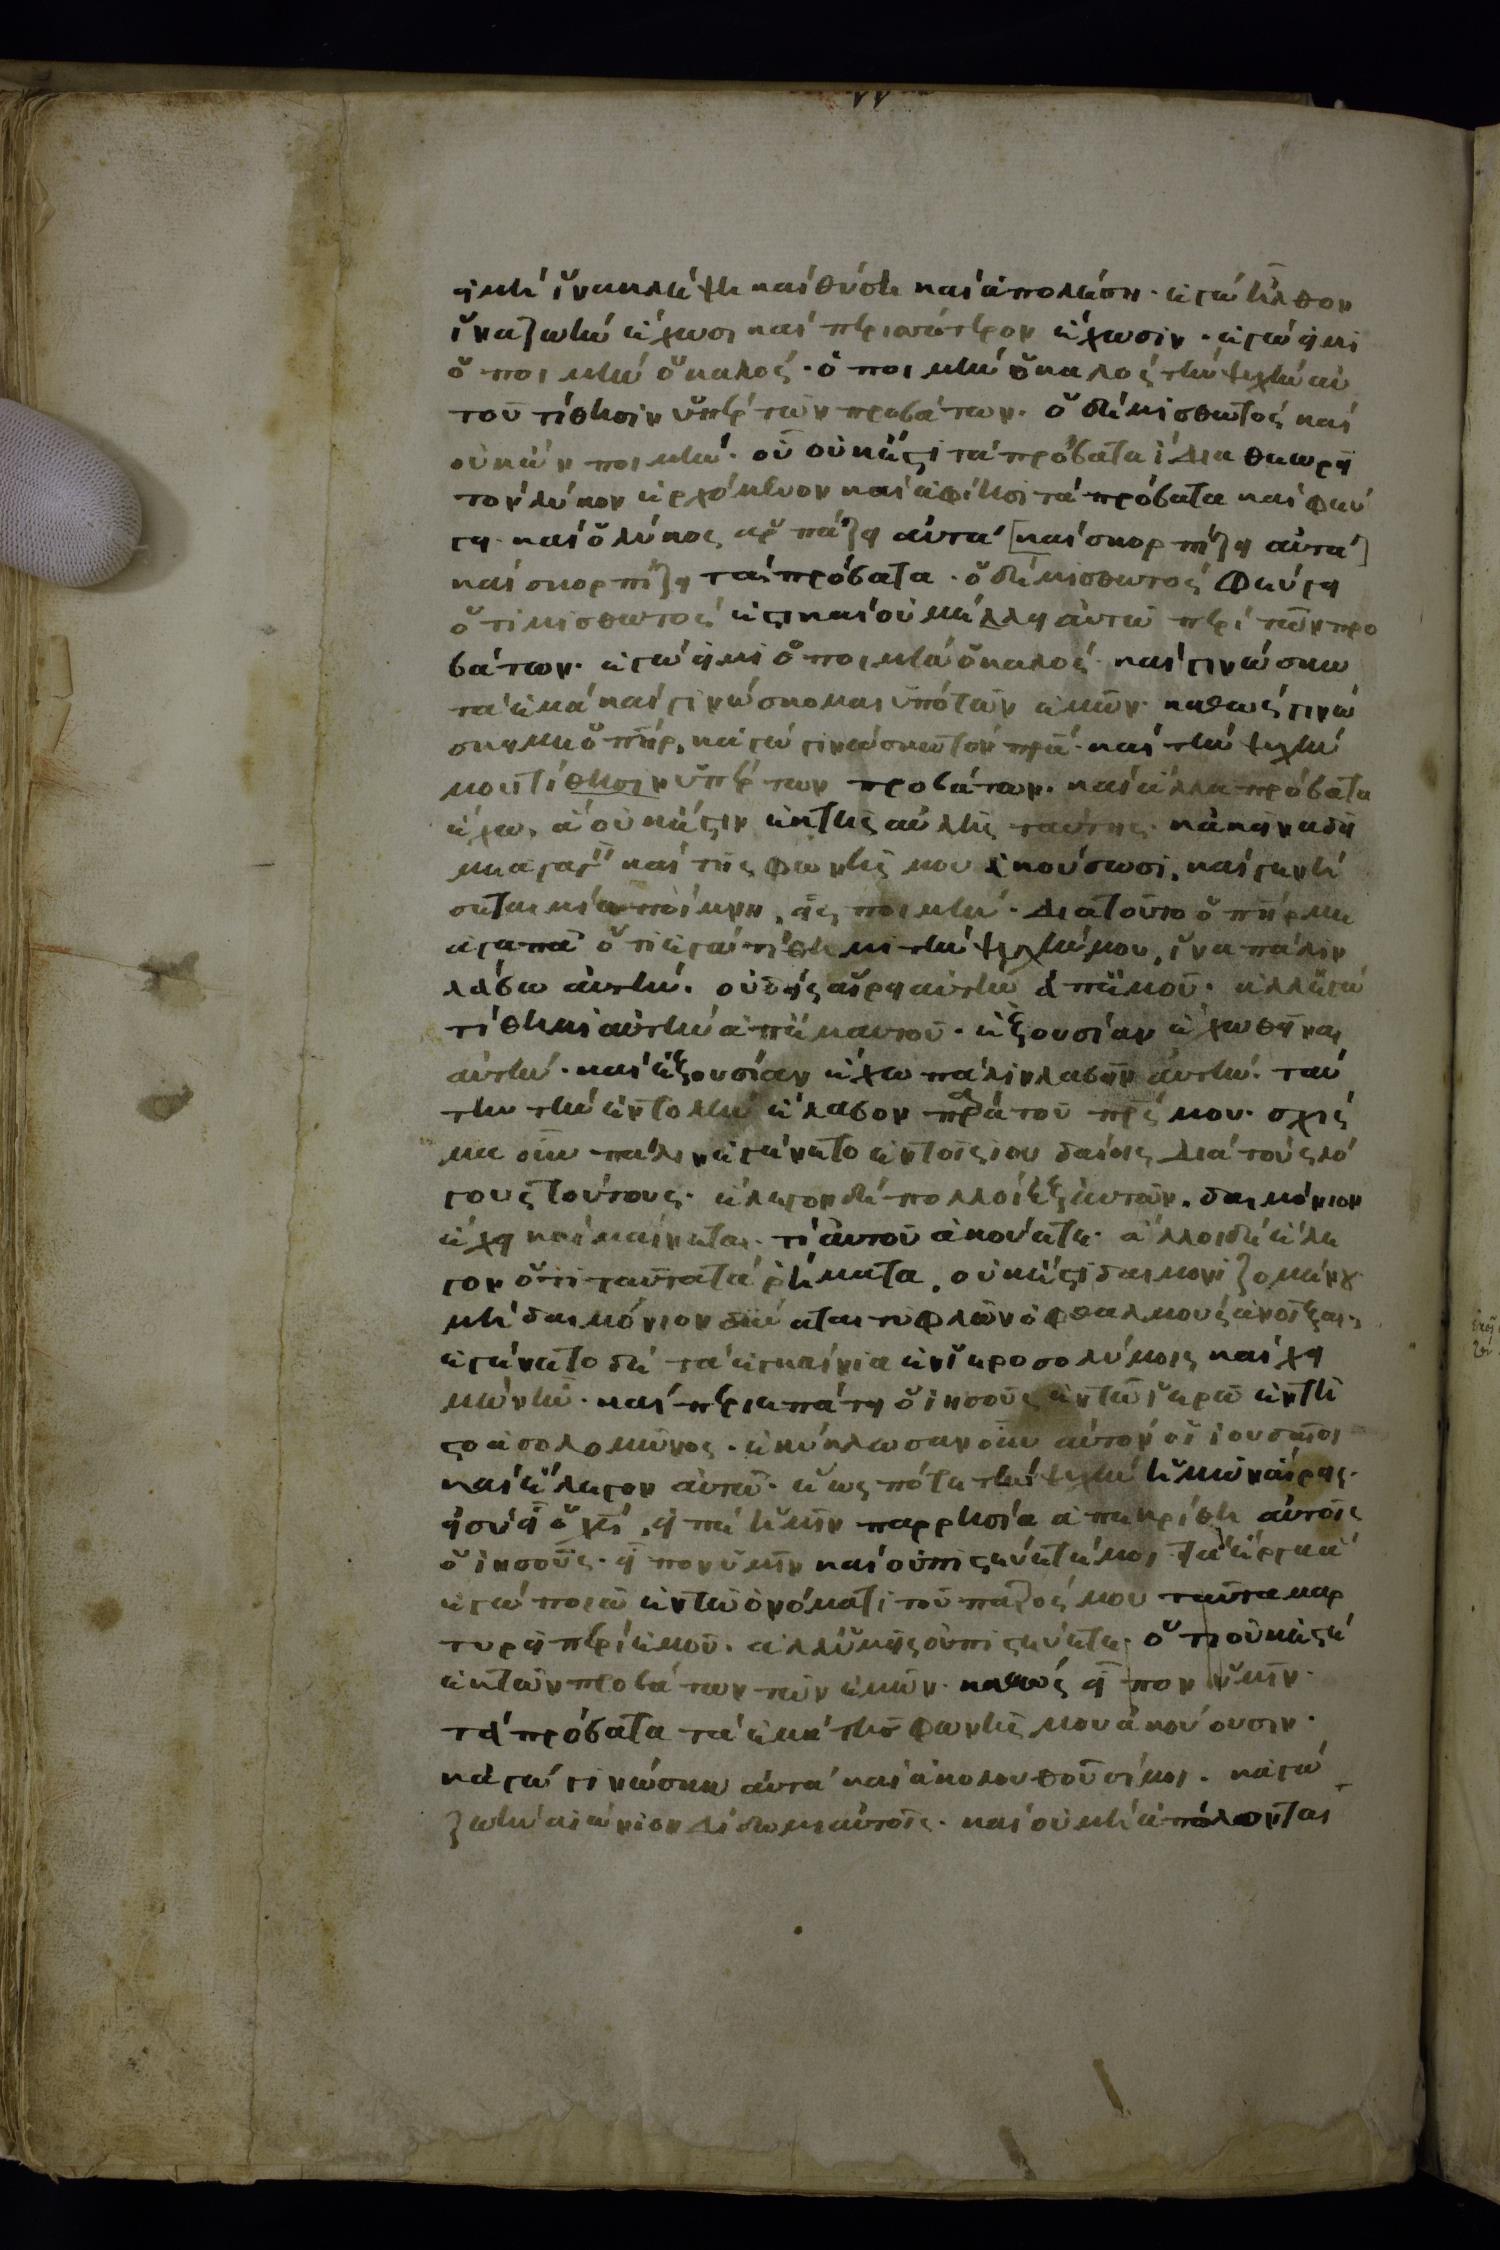 εἰ μὴ ἵνα κλέψη καὶ θύση καὶ ἀπολέση· ἐγὼ ἦλθον
ἵνα ζωὴν ἔχωσι καὶ περισσότερον ἔχωσιν· ἐγώ εἰμι
ὁ ποιμὴν ὁ καλός· ὁ ποιμὴν ὁ καλὸς τὴν ψυχὴν αὐ
τοῦ τίθησιν ὑπὲρ τῶν προβάτων· ὁ δὲ μισθωτὸς καὶ
οὐκ ὢν ποιμήν· οὗ οὐκ ἔστι τὰ πρόβατα ἴδια θεωρεῖ
τὸν λύκον ἐρχόμενον καὶ ἀφίησι τὰ πρόβατα καὶ φεύ
γει· καὶ ὁ λύκος ἁρπάζει αὐτὰ [καὶ σκορπίζει αὐτὰ]
καὶ σκορπίζει τὰ πρόβατα· ὁ δὲ μισθωτὸς φεύγει
ὅτι μισθωτός ἐστι καὶ οὐ μέλλει αὐτῶ περὶ τῶν προ
βάτων· ἐγώ εἰμι ὁ ποιμὴν ὁ καλός· καὶ γινώσκω
τὰ ἐμὰ καὶ γινώσκομαι ὑπὸ τῶν ἐμῶν· καθὼς γινώ
σκει με ὁ πηρ, κἀγὼ γινώσκω τὸν πρα· καὶ τὴν ψυχήν
μου τίθησιν ὑπὲρ των προβάτων· καὶ ἄλλα πρόβατα
ἔχω, ἃ οὐκ ἔστιν ἐκ τῆς αὐλῆς ταύτης· κἀκεῖνα δεῖ
με ἀγαγεῖν καὶ τῆς φωνῆς μου ἀκούσωσι, καὶ γενή
σεται μία ποίμνη, εἷς ποιμήν· διὰ τοῦτο ὁ πηρ με
ἀγαπᾶ ὅτι ἐγὼ τίθημι τὴν ψυχήν μου, ἵνα πάλιν
λάβω αὐτήν· οὐδεὶς αἴρει αὐτὴν ἀπ' ἐμοῦ· ἀλλ' ἐγὼ
τίθημι αὐτὴν ἀπ' ἐμαυτοῦ· ἐξουσίαν ἔχω θεῖναι
αὐτήν· καὶ ἐξουσίαν ἔχω πάλιν λαβεῖν αὐτήν· ταύ
την τὴν ἐντολὴν ἔλαβον παρὰ τοῦ πρς μου· σχίς
μα οὖν πάλιν ἐγένετο ἐν τοῖς ιουδαίοις διὰ τοὺς λό
γους τούτους· ἔλεγον δὲ πολλοὶ ἐξ αὐτῶν, δαιμόνιον
ἔχει καὶ μαίνεται· τί αὐτοῦ ἀκούετε· ἄλλοι δὲ ἔλε
γον ὅτι ταῦτα τὰ ῥήματα, οὐκ ἔστι δαιμονιζομένου
μὴ δαιμόνιον δύναται τυφλῶν ὀφθαλμοὺς ἀνοῖξαι·
ἐγένετο δὲ τὰ ἐγκαίνια ἐν ἱεροσολύμοις καὶ χει
μὼν ἦν· καὶ περιεπάτει ὁ ἰησοῦς ἐν τῶ ἱερῶ ἐν τῆ
στοᾶ σολομῶνος· ἐκύκλωσαν οὖν αὐτὸν οἱ ἰουδαῖοι
καὶ ἔλεγον αὐτῶ· ἕως πότε τὴν ψυχὴν ἡμῶν αἴρεις·
εἰ σὺ εἶ ὁ χς, εἰπὲ ἡμῖν παρρησία ἀπεκρίθη αὐτοῖς
ὁ ἰησοῦς· εἶπον ὑμῖν καὶ οὐ πιστεύετέ μοι τὰ ἔργα ἃ
ἐγὼ ποιῶ ἐν τῶ ὀνόματι τοῦ πατρός μου ταῦτα μαρ
τυρεῖ περὶ ἐμοῦ· ἀλλ' ὑμεῖς οὐ πιστεύετε· ὅτι οὐκ ἐστὲ
ἐκ τῶν προβάτων τῶν ἐμῶν· καθὼς εἶπον ὑμῖν·
τὰ πρόβατα τὰ ἐμὰ τῆς φωνῆς μου ἀκούουσιν·
κἀγὼ γινώσκω αὐτὰ καὶ ἀκολουθοῦσί μοι· κἀγὼ
ζωὴν αἰώνιον δίδωμι αὐτοῖς· καὶ οὐ μὴ ἀπόλονται